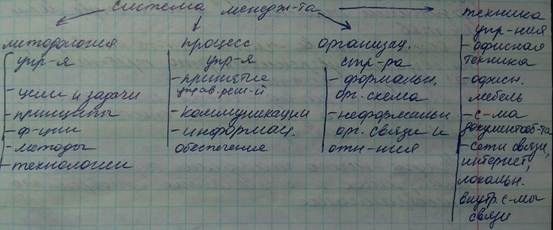 система менедж-та
методология
упр-я
- цели и задачи
- принципы
- ф-ции
- методы
- технологии
процесс
упр-я
- принятие
управ. реш-й
- коммуникации
- информац.
обеспечение
организац.
стр-ра
- формальн.
орг. схема
- неформальн.
орг. связи и
отн-ния
техника
упр-ния
- офисная
техника
- офисн.
мебель
- с-ма
документооб-та
- сети связи,
интернет,
локальн.
внутр. с-мы
связи